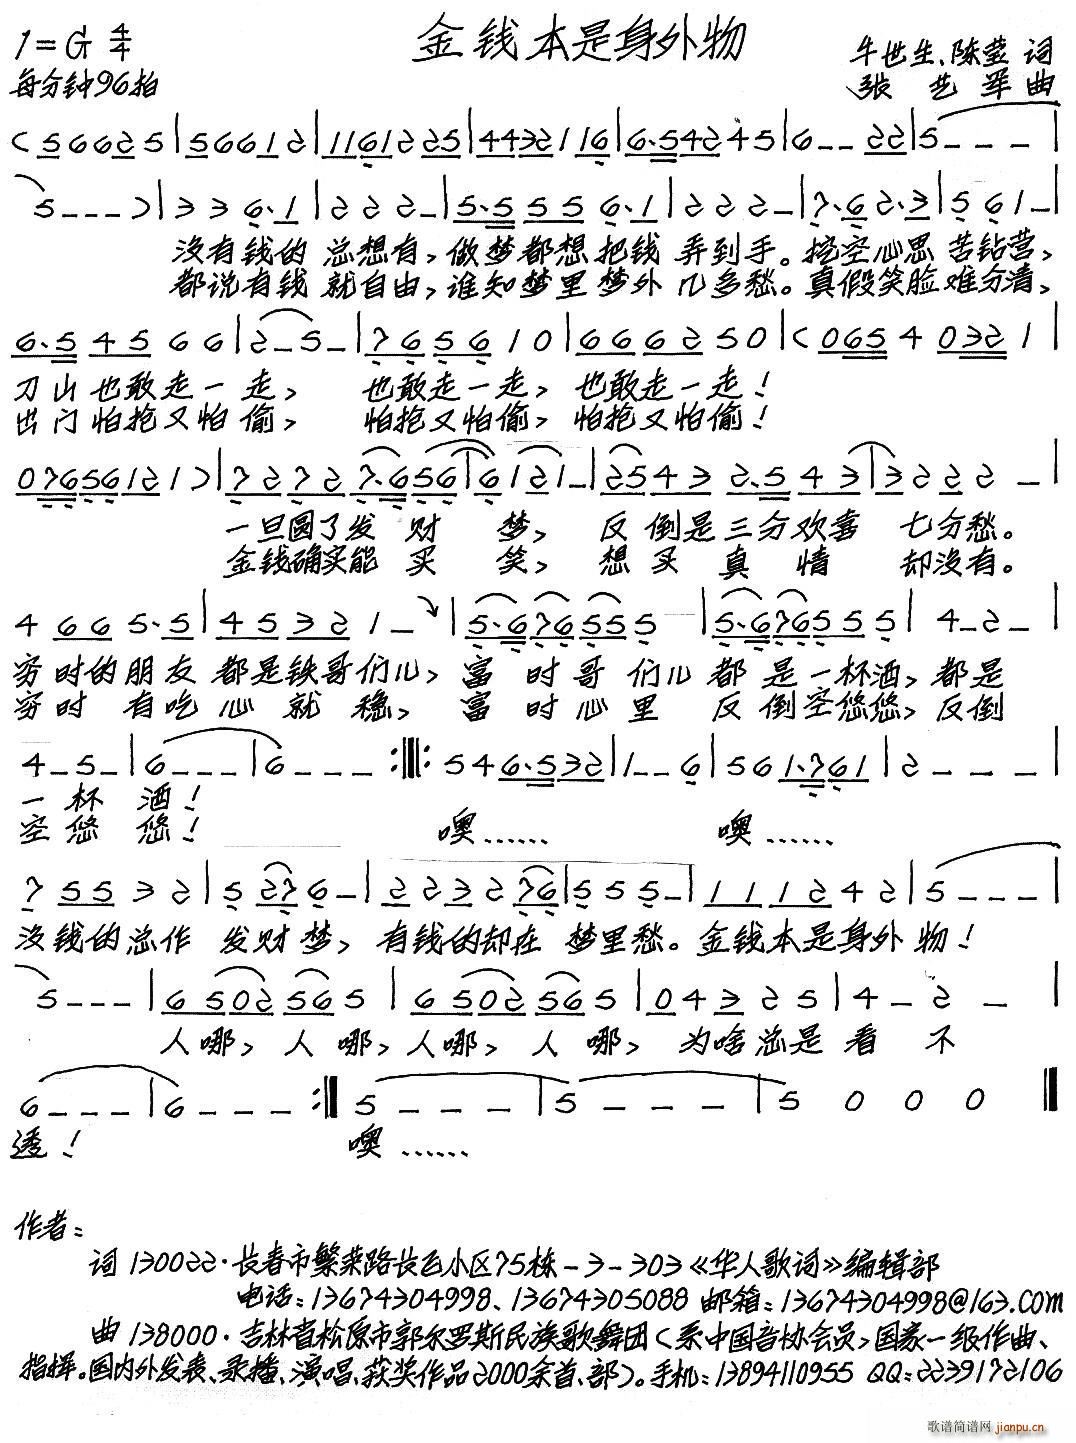 金钱本是身外物
1=G 4/4
牛世生、陈莹 词
每分钟96拍
张艺军 曲
( 5 6 6 2 5 | 5 6 6 1 2 | 1 1 6 1 2 2 5 | 4 4 3 2 1 1 6 | 6. 5 4 2 4 5 | 6 _ _ 2 2 | 5 _ _ _ |
5 _ _ _ ) | 3 3 6. 1 | 2 2 2 _ | 5. 5 5 5 6. 1 | 2 2 2 _ | 7. 6 2. 3 | 5 6 1 _ |
没有钱的 总想有, 做梦都想把钱 弄到手。挖空心思 苦钻营,
都说有钱 就自由, 谁知梦里梦外 几多愁。真假笑脸 难分清,
6. 5 4 5 6 6 | 2 _ 5 _ | 7 6 5 6 1 0 | 6 6 6 2 5 0 | ( 0 6 5 4 0 3 2 1 |
刀山也敢走一走, 也敢走一走, 也敢走一走!
出门怕抢又怕偷, 怕抢又怕偷, 怕抢又怕偷!
0 7 6 5 6 1 2 1 ) | 7 2 7 2 7. 6 5 6 | 6 1 2 1 _ | 2 5 4 3 2. 5 4 3 | 3 2 2 2 _ |
一旦圆了发财 梦, 反倒是三分欢喜 七分愁。
金钱确实能买 笑, 想买真情 却没有。
4 6 6 5. 5 | 4 5 3 2 1 _ | 5. 6 7 6 5 5 5 | 5. 6 7 6 5 5 5 | 4 _ 2 _ |
穷时的朋友 都是铁哥们儿, 富时哥们儿都是一杯酒, 都是
穷时有吃心就稳, 富时心里反倒空悠悠, 反倒
4 _ 5 _ | 6 _ _ _ | 6 _ _ _ :||: 5 4 6. 5 3 2 | 1 _ _ 6 | 5 6 1. 7 6 1 | 2 _ _ _ |
一杯 酒!
空悠 悠! 噢…… 噢……
7 5 5 3 2 | 5 2 7 6 _ | 2 2 3 2 7 6 | 5 5 5 _ | 1 1 1 2 4 2 | 5 _ _ _ |
没钱的总作 发财梦, 有钱的却在 梦里愁。金钱本是身外物!
5 _ _ _ | 6 5 0 2 5 6 5 | 6 5 0 2 5 6 5 | 0 4 3 2 5 | 4 _ 2 _ |
人哪, 人哪, 人哪, 人哪, 为啥总是看不
6 _ _ _ | 6 _ _ _ :|| 5 _ _ _ | 5 _ _ _ | 5 0 0 0 ||
透! 噢……
作者:
词 130022·长春市繁荣路长飞小区75栋-3-303《华人歌词》编辑部
电话:13674304998、13674305088 邮箱:13674304998@163.com
曲 138000·吉林省松原市郭尔罗斯民族歌舞团(系中国音协会员)国家一级作曲、
指挥。国内外发表、录播、演唱、获奖作品2000余首、部)。手机:13894110955 QQ:2239172106
歌谱简谱网 jianpu.cn